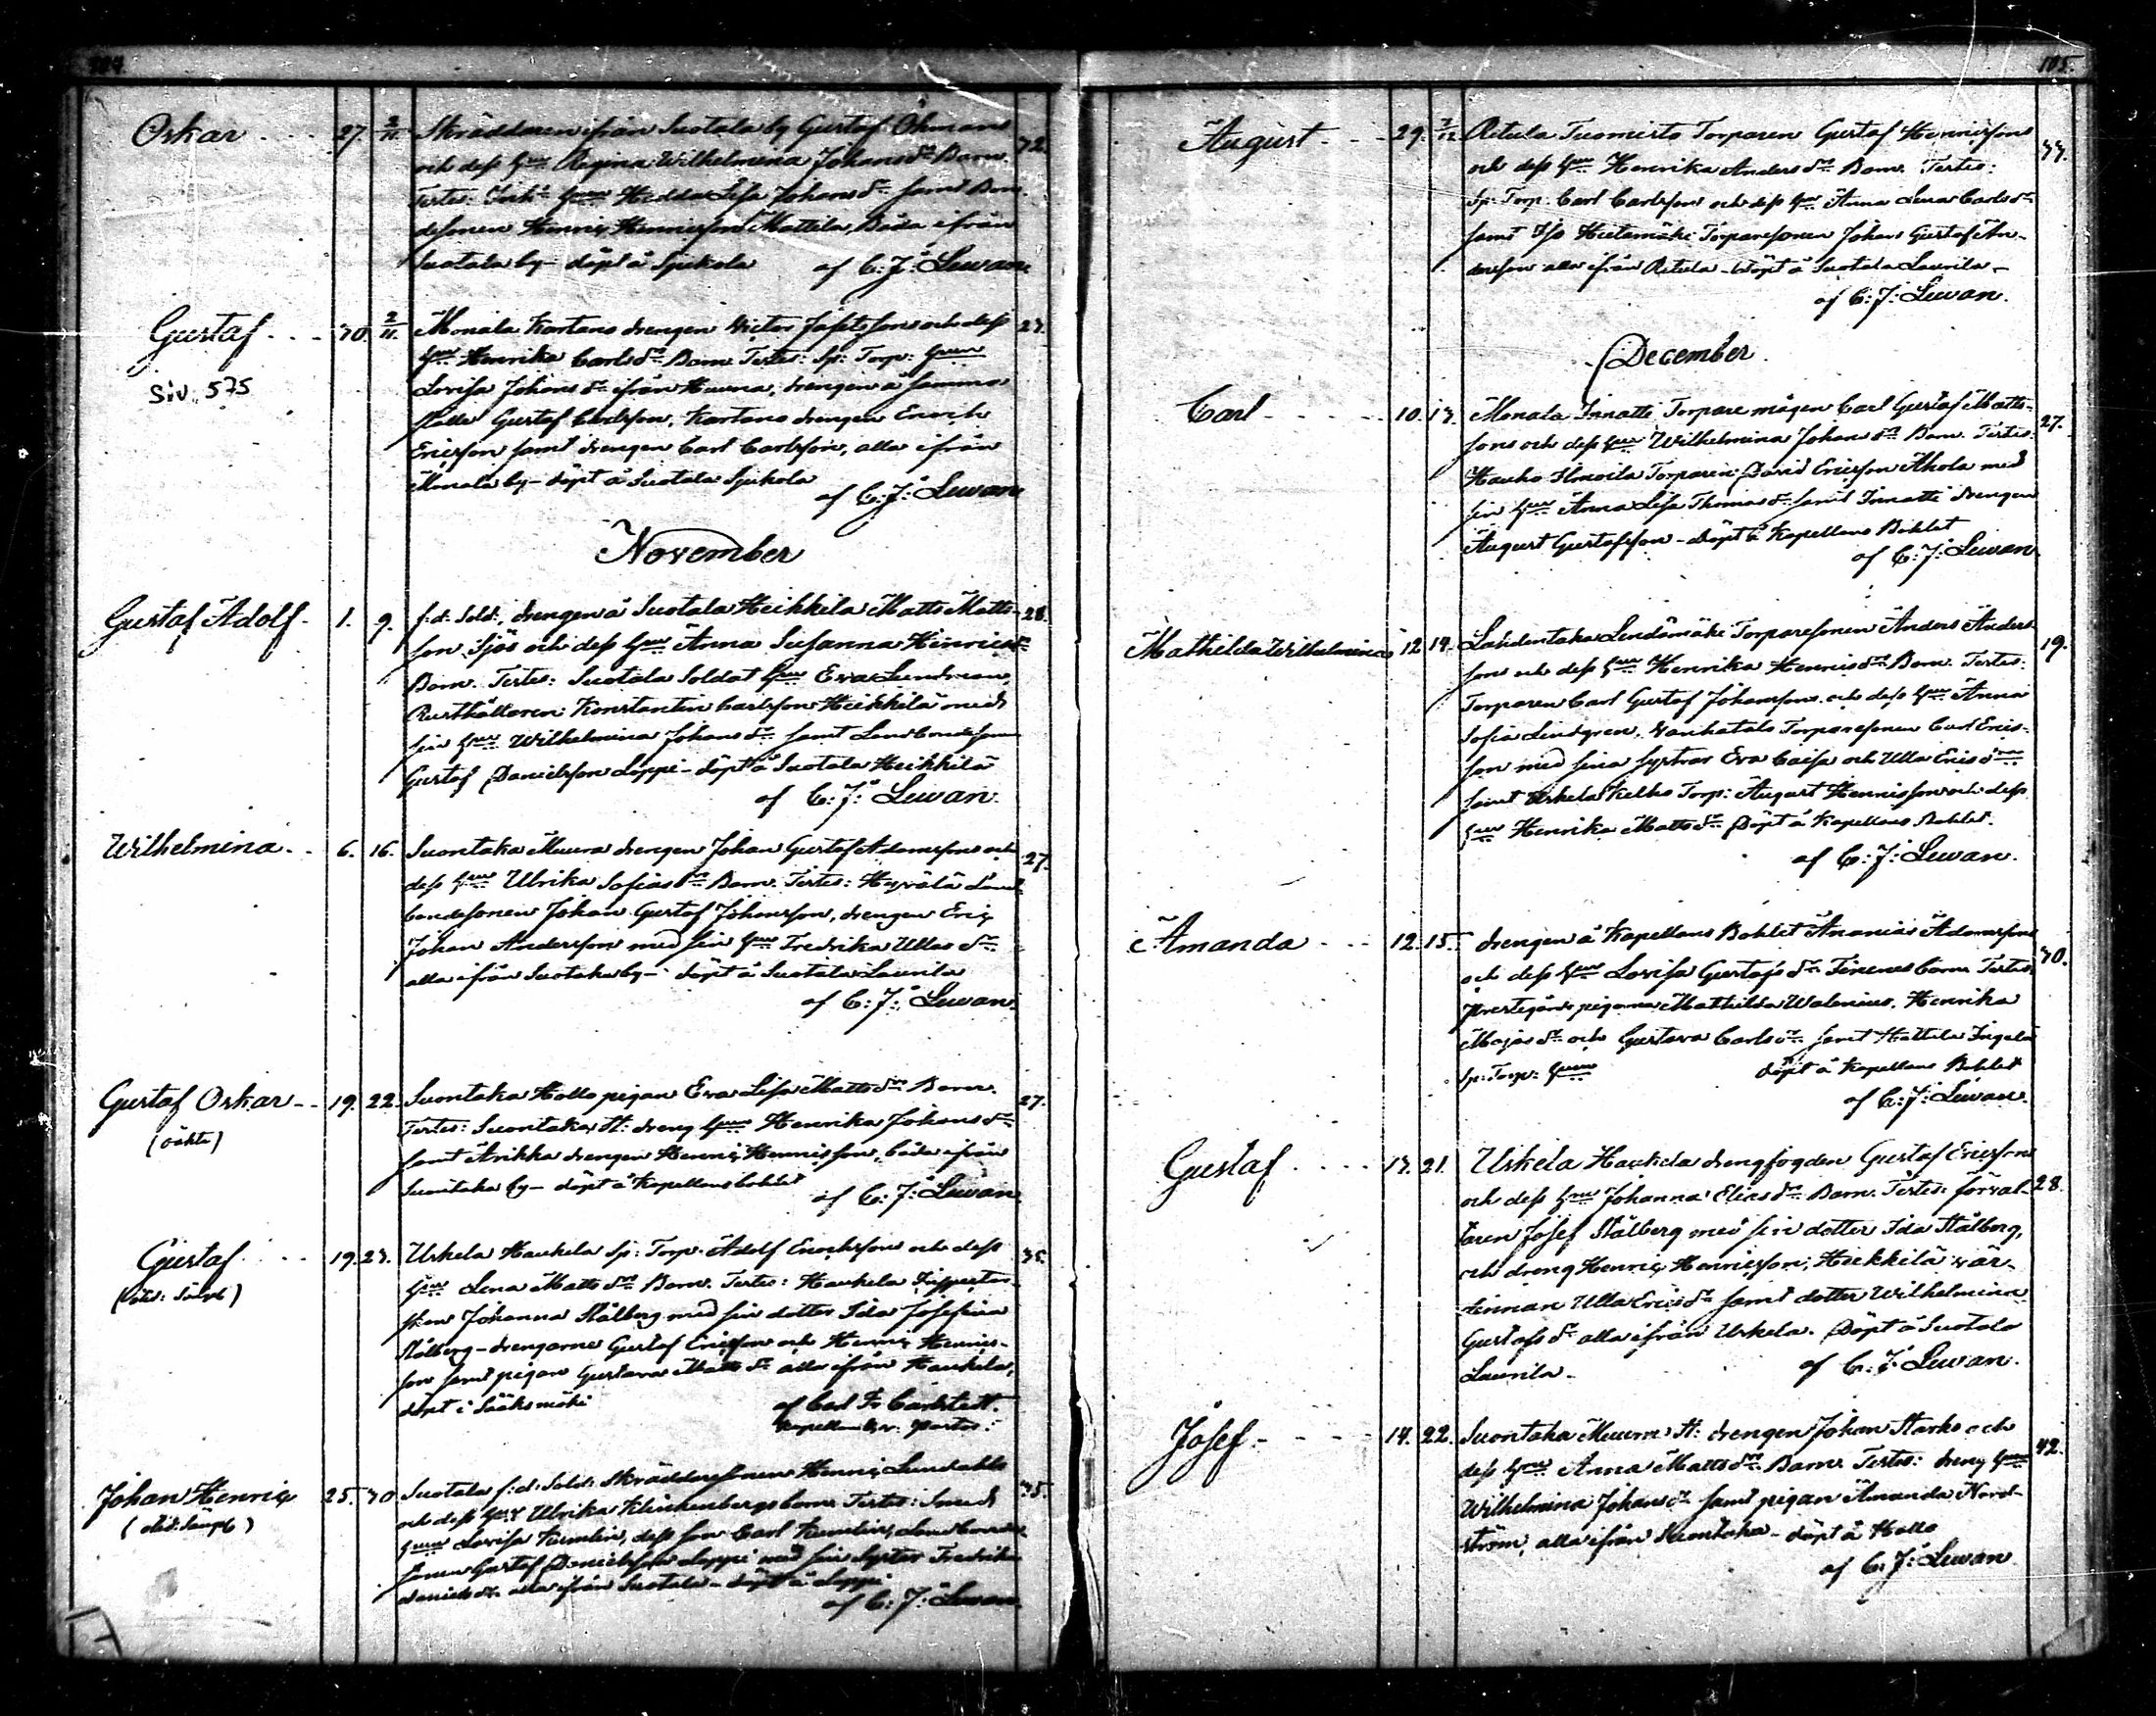 105.
Oskar 27. 2/11. Skräddaren ifrån Suotala by Gustaf Öhman
och dess Hu Regina Wilhelmina Johansdr Barn.
Hedda Lisa Johansdr samt Bon-
desonen Henric Henricsson Mattila, Båda ifrån
Suotala by – döpt å Sjukola
af C: J: Lewan.
Gustaf 30. 2/11. Monala Kartano drengen Victor Josefsson och dess 23.
Hu Henrika Carlsdr Barn Testes: Sp: Torp: Hu
Lovisa Johansdr ifrån drengen å samma
ställe Gustaf Carlsson, Kartano drengen Enoch
Ericsson samt drengen Carl Carlsson, alla ifrån
Monala by – döpt å Suotala Sjukola
af C: J: Lewan
Siv. 575
November
Gustaf Adolf 1. 9. f: d: Sold:, drengen å Suotala Heikkilä Matts Matts- 28.
son Sjös och dess Hu Anna Susanna Henricsdr
Barn. Testes: Suotala Soldat Hu Eva Lundman,
Rusthållaren Konstantin Carlsson Heikkilä med
sin Hu Wilhelmina Johansdr samt Landbondesonen
Gustaf Danielsson Loppi – döpt å Suotala Heikkilä
af C: J: Lewan.
Wilhelmina 6. 16. Suontaka Muura drengen Johan Gustaf Adamsson och 27.
dess Hu Ulrika Sofiasdr Barn. Testes: Hyvölä Land-
bondesonen Johan Gustaf Johansson, drengen Eric
Johan Andersson med sin Hu Fredrika Ullasdr
alla ifrån Suotaka by – döpt å Suotala Laurila
af C: J: Lewan.
Gustaf Oskar 19. 22. Suontaka Hollo pigan Eva Lisa Mattsdr Barn. 27.
(oäkte)
Testes: Suontaka St: dreng Hu Henrika Johansdr
samt Arikka drengen Henric Henricsson, båda ifrån
Suontaka by – döpt å Kapellans bohlet
af C: J: Lewan
Gustaf 19. 23. Urkela Haukela Sp: Torp. Adolf Enochsson och dess 35.
Hu Lena Mattsdr Barn. Testes: Haukela
Johanna Stålberg med sin dotter Ida Josefina
Stålberg – drengarne Gustaf Ericsson och Henric Henrics-
son samt pigan Gustava Mattsdr alla ifrån Haukela,
döpt i Sääksmäki
af Carl Fr Carlstedt.
Johan Henric 25. 30. Suotala f: d: Sold: Skräddaresonen Henric Lundahls 35.
och dess Hu Ulrika Klinkenbergs barn Testes: Smed
Hu Lovisa Kumlin, dess son Carl Kumlin, Landbonde
sonen Gustaf Danielsson Loppi med sin syster Fredrika
Danielsdr alla ifrån Suotala – döpt å Loppi
af C: J: Lewan.
August 29. 2/12 Ritula Tuomisto Torparen Gustaf Henricsson 33.
och dess Hu Henrika Andersdr Barn. Testes:
Sp: Torp. Carl Carlsson och dess Hu Anna Lena Carlsdr
samt Hietamäki Torparesonen Johan Gustaf An-
dersson alla ifrån Ritula – döpt å Suotala Laurila –
af C: J: Lewan.
December
Carl 10. 13. Monala Innatti Torpare mågen Carl Gustaf Matts- 27.
son och dess Hu Wilhelmina Johansdr Barn. Testes:
Hauho Ilmoila Torparen David Ericsson Ahola med
sin Hu Anna Lisa Thomasdr samt Innatti drengen
August Gustafsson – Döpt å Kapellans Bohlet
af C: J: Lewan
Mathilda Wilhelmina 12. 14. Lahdentaka Torparesonen Anders Anders- 19.
son och dess Hu Henrika Henricsdr Barn. Testes:
Torparen Carl Gustaf Johansson och dess Hu Anna
Sofia Lindgren, Torparesonen Carl Erics-
son med sina systrar Eva Caisa och Ulla Ericsdr
samt Urkela Kelho Torp: August Henricsson och dess
Hu Henrika Mattsdr Döpt å Kapellans Bohlet.
af C: J: Lewan.
Amanda 12. 15. drengen å Kapellans Bohlet Ananias Adamsson 30.
och dess Hu Lovisa Gustafsdr barn Testes:
Prestegårds pigorna Mathilda Walenius, Henrika
Majasdr och Gustava Carlsdr samt Hattula Ingela
Sp: Torp: Hu döpt å Kapellans Bohlet
af C: J: Lewan.
Gustaf 13. 21. Urkela Haukela drengfogden Gustaf Ericsson 28.
och dess Hu Johanna Eliasdr Barn. Testes: förval-
taren Josef Stålberg med sin dotter Ida Stålberg,
och dreng Henric Henricsson, Heikkilä vär-
dinnan Ulla Ericsdr samt dotter Wilhelmina
Gustafsdr alla ifrån Urkela. Döpt å Suotala
Laurila. af C: J: Lewan.
Josef 14. 22. Suontaka Muurn St: drengen Johan Starks och 42.
dess Hu Anna Mattsdr Barn. Testes: dreng Hu
Wilhelmina Johansdr samt pigan Amanda Nord-
ström, alla ifrån Suontaka – döpt å Hollo
af C: J: Lewan